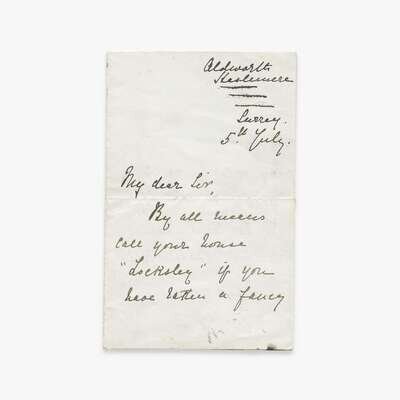 Aldworth
Haslemere
Surrey.
5th July.
My dear Sir,
By all means
call your house
"Locksley" if you
have taken a fancy